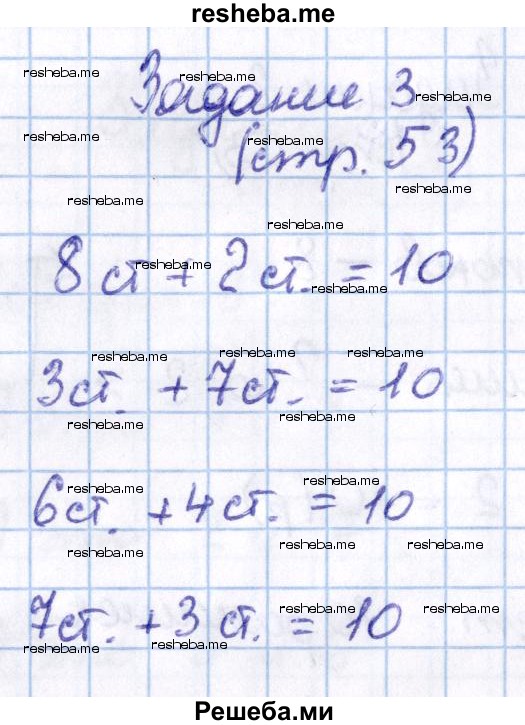 resheba.me
resheba.me resheba.me resheba.me
Задание 3
resheba.me resheba.me
(стр. 53)
resheba.me
resheba.me resheba.me
resheba.me
8 ст + 2 ст. = 10
resheba.me
resheba.me resheba.me resheba.me
3 ст. + 7 ст. = 10
resheba.me resheba.me
resheba.me resheba.me
6 ст. + 4 ст. = 10
resheba.me resheba.me resheba.me
resheba.me resheba.me resheba.me
7 ст. + 3 ст. = 10
resheba.me resheba.me resheba.me
Решеба.ми